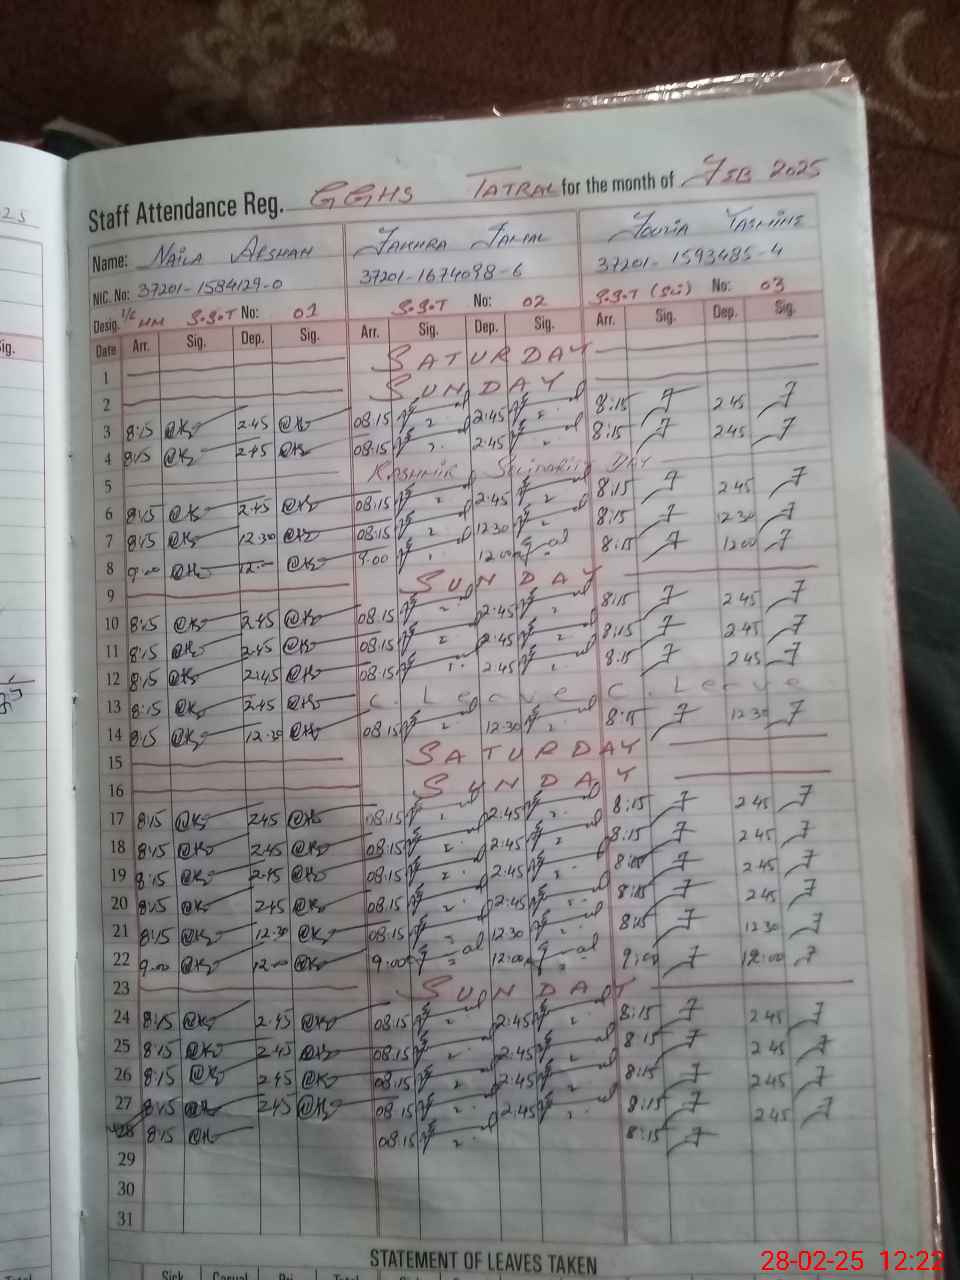 Staff Attendance Reg. GGHS TATRAL for the month of FEB 2025
Name: NAILA ARSHAN FAKHRA JAMAL FOUZIA YASMINE
NIC. No: 37201-1584129-0 37201-1674098-6 37201-1593485-4
Desig. I/C HM S.S.T No: 01 S.S.T No: 02 S.S.T (Sci) No: 03
Date Arr. Sig. Dep. Sig. Arr. Sig. Dep. Sig. Arr. Sig. Dep. Sig.
1 SATURDAY
2 SUNDAY
3 8:15 2.45 08:15 2:45 8:15 2 45
4 8:15 2.45 08:15 2:45 8:15 2 45
5 KASHMIR Solidarity DAY
6 8:15 2.45 08:15 2:45 8:15 2 45
7 8:15 12.30 08:15 12 30 8:15 12 30
8 9.00 12.00 9.00 12.00 8:15 12 00
9 SUNDAY
10 8:15 2.45 08:15 2:45 8:15 2 45
11 8:15 2.45 08:15 2:45 8:15 2 45
12 8:15 2:45 08:15 2:45 8:15 2 45
13 8:15 2.45 C. Leave C. Leave
14 8:15 12.30 08:15 12:30 8:15 12 30
15 SATURDAY
16 SUNDAY
17 8:15 2.45 08:15 2:45 8:15 2 45
18 8:15 2.45 08:15 2:45 8:15 2 45
19 8:15 2.45 08:15 2:45 2 45
20 8:15 2.45 08:15 2:45 8:15 2 45
21 8:15 12.30 08:15 12 30 8:15 12 30
22 9.00 12.00 9:00 12:00 9:00 12:00
23 SUNDAY
24 8:15 2.45 08:15 2:45 8:15 2 45
25 8:15 2.45 08:15 2:45 8:15 2 45
26 8:15 2.45 08:15 2:45 8:15 2 45
27 8:15 2.45 08:15 2:45 8:15 2 45
28 8:15 08:15 8:15
29
30
31
STATEMENT OF LEAVES TAKEN
28-02-25 12:22